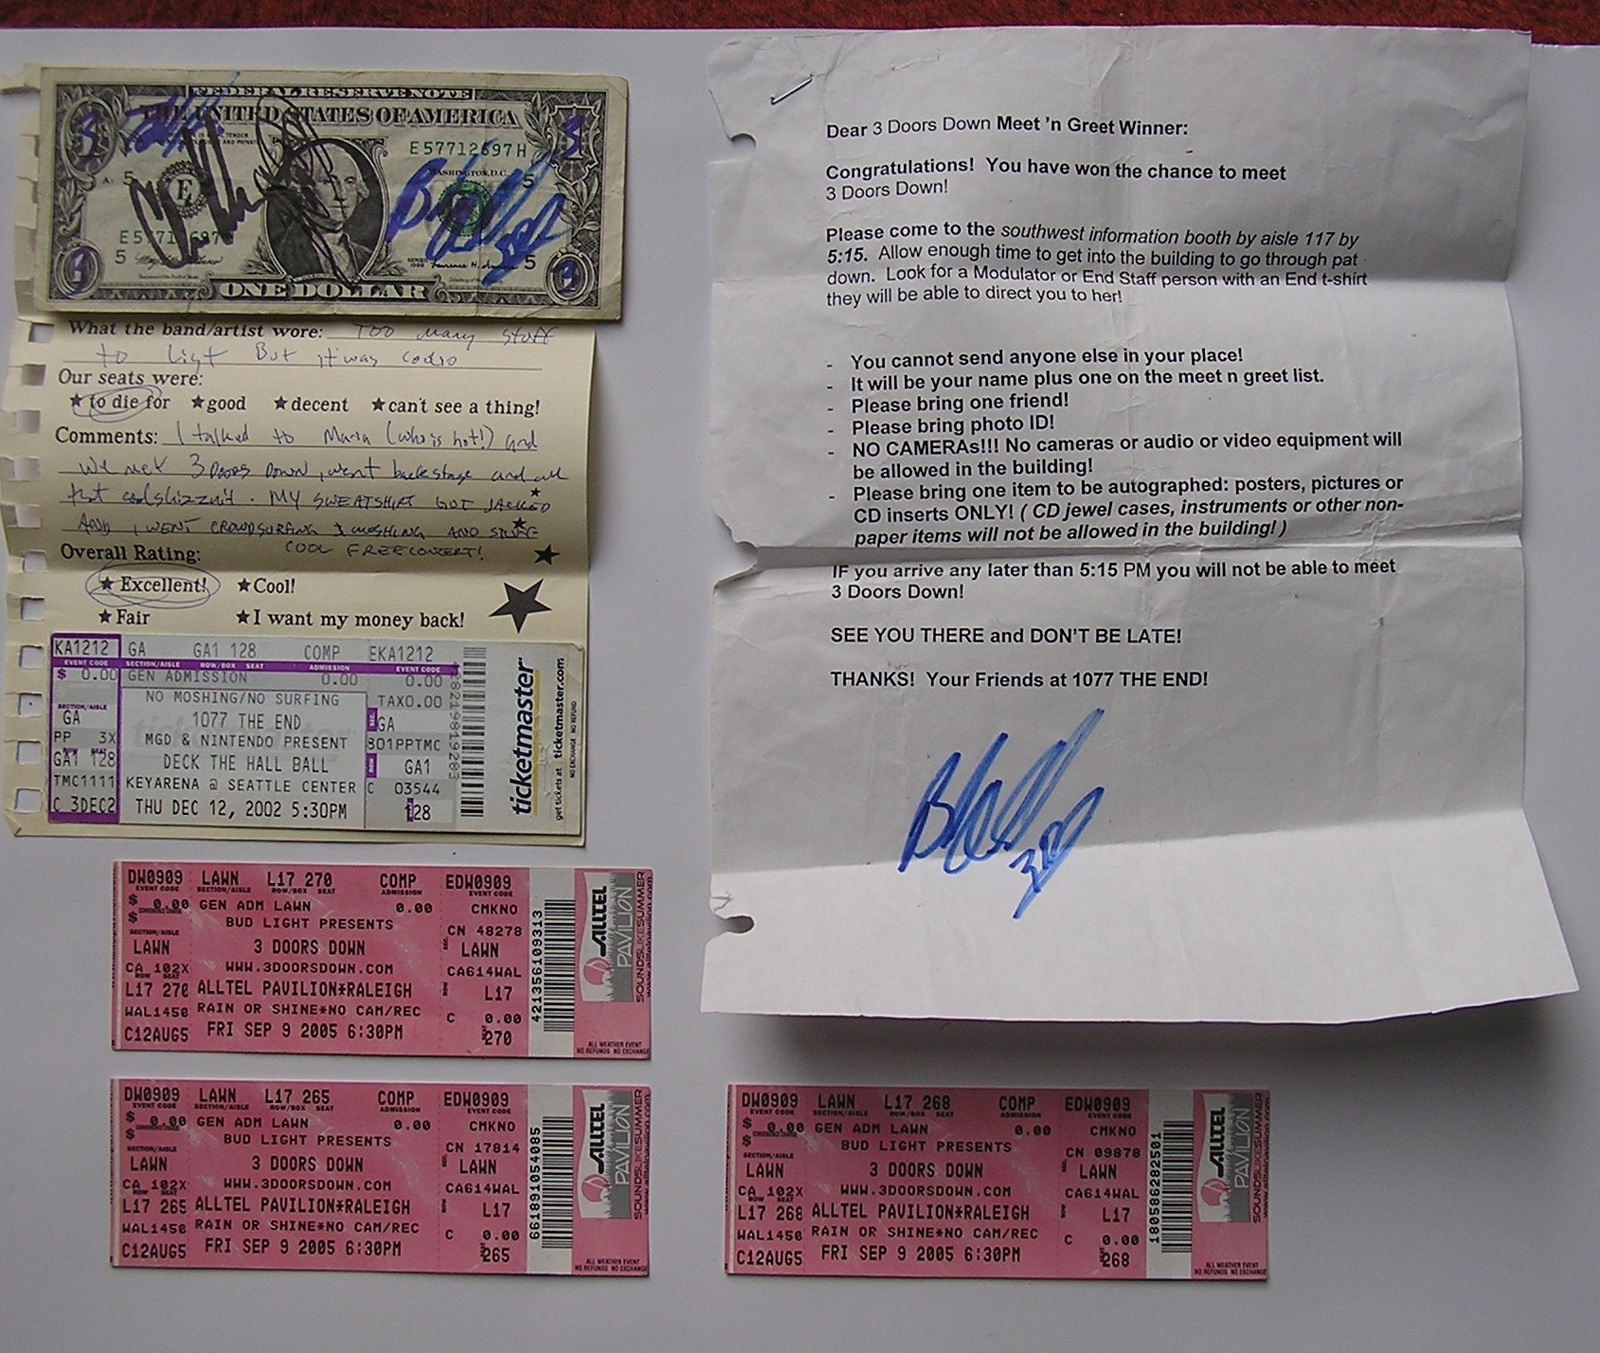 FEDERAL RESERVE NOTE
THE UNITED STATES OF AMERICA
E 57712697 H
WASHINGTON, D.C.
ONE DOLLAR
What the band/artist wore: Too many stuff
to list But it was
Our seats were:
★ to die for ★ good ★ decent ★ can't see a thing!
Comments: I talked to Maria (who is hot!) and
we met 3 Doors Down, went backstage and all
that coolshizznit. MY SWEATSHIRT GOT JACKED
AND I WENT CROWDSURFING & MOSHING AND
COOL FREE CONCERT!
Overall Rating:
★ Excellent! ★ Cool!
★ Fair ★ I want my money back!
KA1212 GA GA1 128 COMP EKA1212
EVENT CODE SECTION/AISLE ROW/BOX SEAT ADMISSION EVENT CODE
$ 0.00 GEN ADMISSION 0.00 0.00
NO MOSHING/NO SURFING TAX0.00
SECTION/AISLE
GA 1077 THE END GA
PP 3X MGD & NINTENDO PRESENT 801PPTMC
GA1 128 DECK THE HALL BALL GA1
TMC1111 KEYARENA @ SEATTLE CENTER C 03544
C 3DEC2 THU DEC 12, 2002 5:30PM 128
2821981928 3
ticketmaster
get tickets at ticketmaster.com
NO EXCHANGE NO REFUND
Dear 3 Doors Down Meet 'n Greet Winner:
Congratulations! You have won the chance to meet
3 Doors Down!
Please come to the southwest information booth by aisle 117 by
5:15. Allow enough time to get into the building to go through pat
down. Look for a Modulator or End Staff person with an End t-shirt
they will be able to direct you to her!
- You cannot send anyone else in your place!
- It will be your name plus one on the meet n greet list.
- Please bring one friend!
- Please bring photo ID!
- NO CAMERAs!!! No cameras or audio or video equipment will
be allowed in the building!
- Please bring one item to be autographed: posters, pictures or
CD inserts ONLY! ( CD jewel cases, instruments or other non-
paper items will not be allowed in the building! )
IF you arrive any later than 5:15 PM you will not be able to meet
3 Doors Down!
SEE YOU THERE and DON'T BE LATE!
THANKS! Your Friends at 1077 THE END!
DW0909 LAWN L17 270 COMP EDW0909
EVENT CODE SECTION/AISLE ROW/BOX SEAT ADMISSION EVENT CODE
$ 0.00 GEN ADM LAWN 0.00 CMKNO
$ BUD LIGHT PRESENTS CN 48278
SECTION/AISLE
LAWN 3 DOORS DOWN LAWN
CA 102X WWW.3DOORSDOWN.COM CA614WAL
L17 270 ALLTEL PAVILION*RALEIGH L17
WAL1450 RAIN OR SHINE*NO CAM/REC C 0.00
C12AUG5 FRI SEP 9 2005 6:30PM 270
421356109313
ALLTEL
PAVILION
SOUNDSLIKESUMMER
www.alltelpavilion.com
ALL WEATHER EVENT
NO REFUNDS NO EXCHANGE
DW0909 LAWN L17 265 COMP EDW0909
EVENT CODE SECTION/AISLE ROW/BOX SEAT ADMISSION EVENT CODE
$ 0.00 GEN ADM LAWN 0.00 CMKNO
$ BUD LIGHT PRESENTS CN 17814
SECTION/AISLE
LAWN 3 DOORS DOWN LAWN
CA 102X WWW.3DOORSDOWN.COM CA614WAL
L17 265 ALLTEL PAVILION*RALEIGH L17
WAL1450 RAIN OR SHINE*NO CAM/REC C 0.00
C12AUG5 FRI SEP 9 2005 6:30PM 265
661891054085
ALLTEL
PAVILION
SOUNDSLIKESUMMER
www.alltelpavilion.com
ALL WEATHER EVENT
NO REFUNDS NO EXCHANGE
DW0909 LAWN L17 268 COMP EDW0909
EVENT CODE SECTION/AISLE ROW/BOX SEAT ADMISSION EVENT CODE
$ 0.00 GEN ADM LAWN 0.00 CMKNO
$ BUD LIGHT PRESENTS CN 09878
SECTION/AISLE
LAWN 3 DOORS DOWN LAWN
CA 102X WWW.3DOORSDOWN.COM CA614WAL
L17 268 ALLTEL PAVILION*RALEIGH L17
WAL1450 RAIN OR SHINE*NO CAM/REC C 0.00
C12AUG5 FRI SEP 9 2005 6:30PM 268
180586282501
ALLTEL
PAVILION
SOUNDSLIKESUMMER
www.alltelpavilion.com
ALL WEATHER EVENT
NO REFUNDS NO EXCHANGE